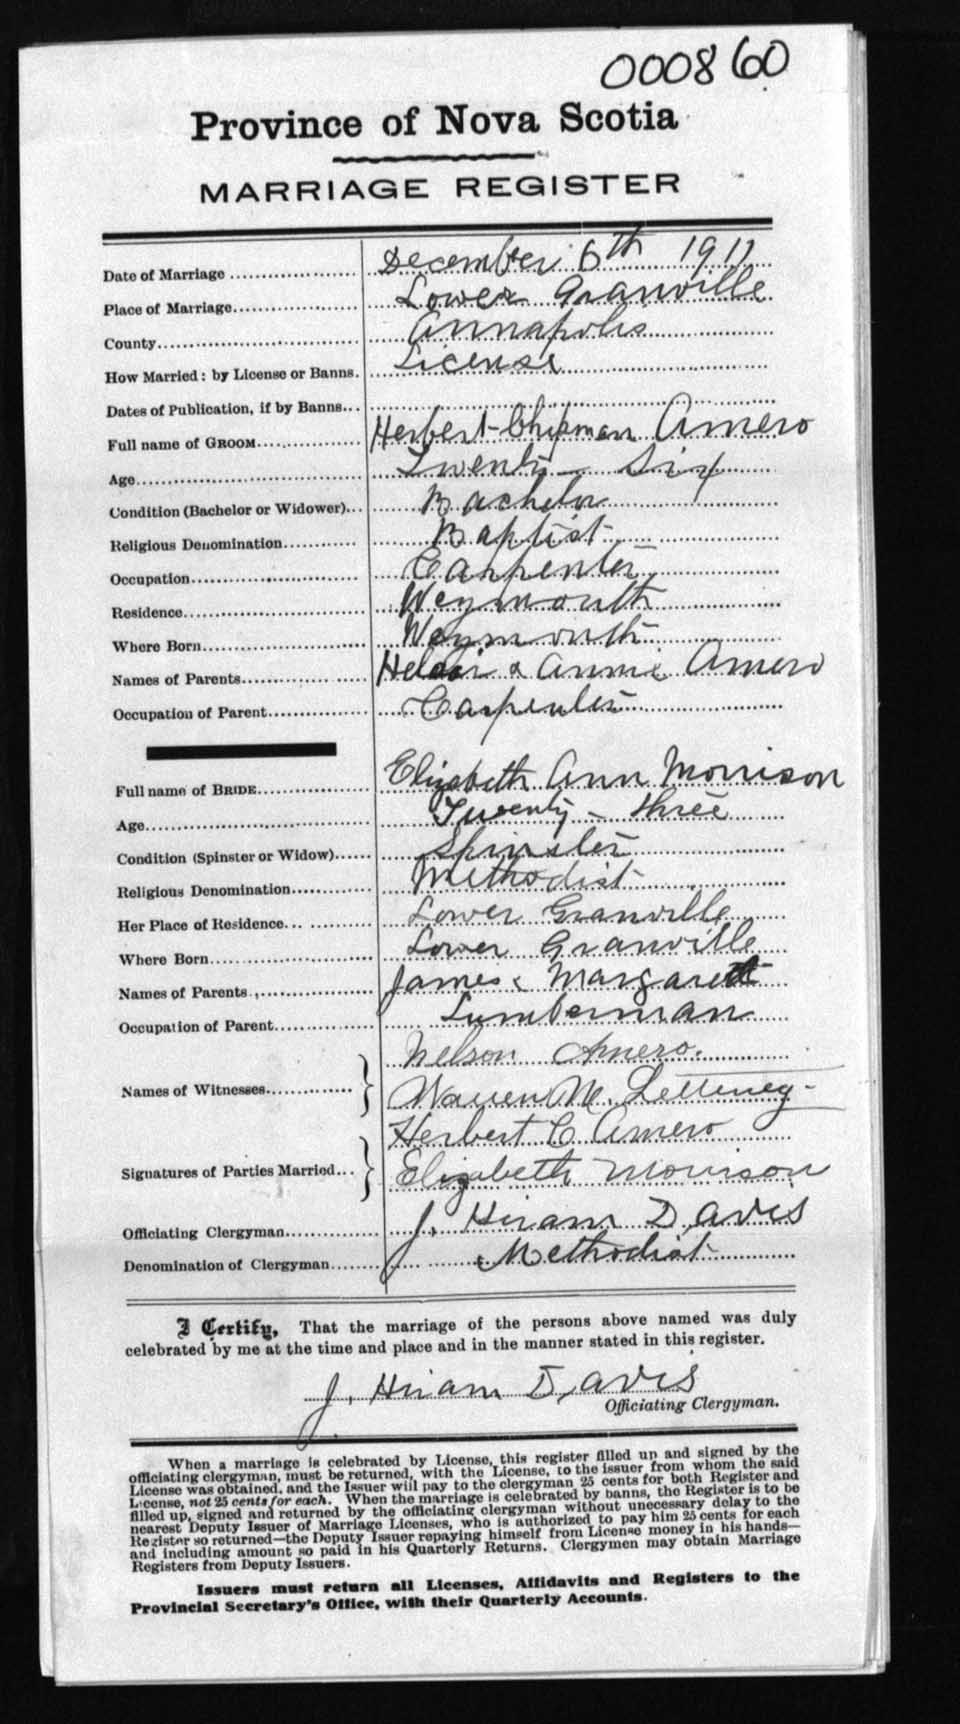 000860
Province of Nova Scotia
MARRIAGE REGISTER
Date of Marriage December 6th 1911
Place of Marriage Lower Granville
County Annapolis
How Married: by License or Banns. License
Dates of Publication, if by Banns
Full name of GROOM Herbert Chipman Amero
Age Twenty-Six
Condition (Bachelor or Widower) Bachelor
Religious Denomination Baptist
Occupation Carpenter
Residence Weymouth
Where Born Weymouth
Names of Parents & Annie Amero
Occupation of Parent Carpenter
Full name of BRIDE Elizabeth Ann Morrison
Age Twenty-three
Condition (Spinster or Widow) Spinster
Religious Denomination Methodist
Her Place of Residence Lower Granville
Where Born Lower Granville
Names of Parents James & Margarett
Occupation of Parent Lumberman
Nelson Amero.
Names of Witnesses Warren M. Letteney
Herbert C Amero
Signatures of Parties Married Elizabeth Morrison
Officiating Clergyman J. Hiram Davis
Denomination of Clergyman Methodist
I Certify, That the marriage of the persons above named was duly
celebrated by me at the time and place and in the manner stated in this register.
J. Hiram Davis
Officiating Clergyman.
When a marriage is celebrated by License, this register filled up and signed by the
officiating clergyman, must be returned, with the License, to the issuer from whom the said
License was obtained, and the Issuer will pay to the clergyman 25 cents for both Register and
License, not 25 cents for each. When the marriage is celebrated by banns, the Register is to be
filled up, signed and returned by the officiating clergyman without unnecessary delay to the
nearest Deputy Issuer of Marriage Licenses, who is authorized to pay him 25 cents for each
Register so returned—the Deputy Issuer repaying himself from License money in his hands—
and including amount so paid in his Quarterly Returns. Clergymen may obtain Marriage
Registers from Deputy Issuers.
Issuers must return all Licenses, Affidavits and Registers to the
Provincial Secretary's Office, with their Quarterly Accounts.